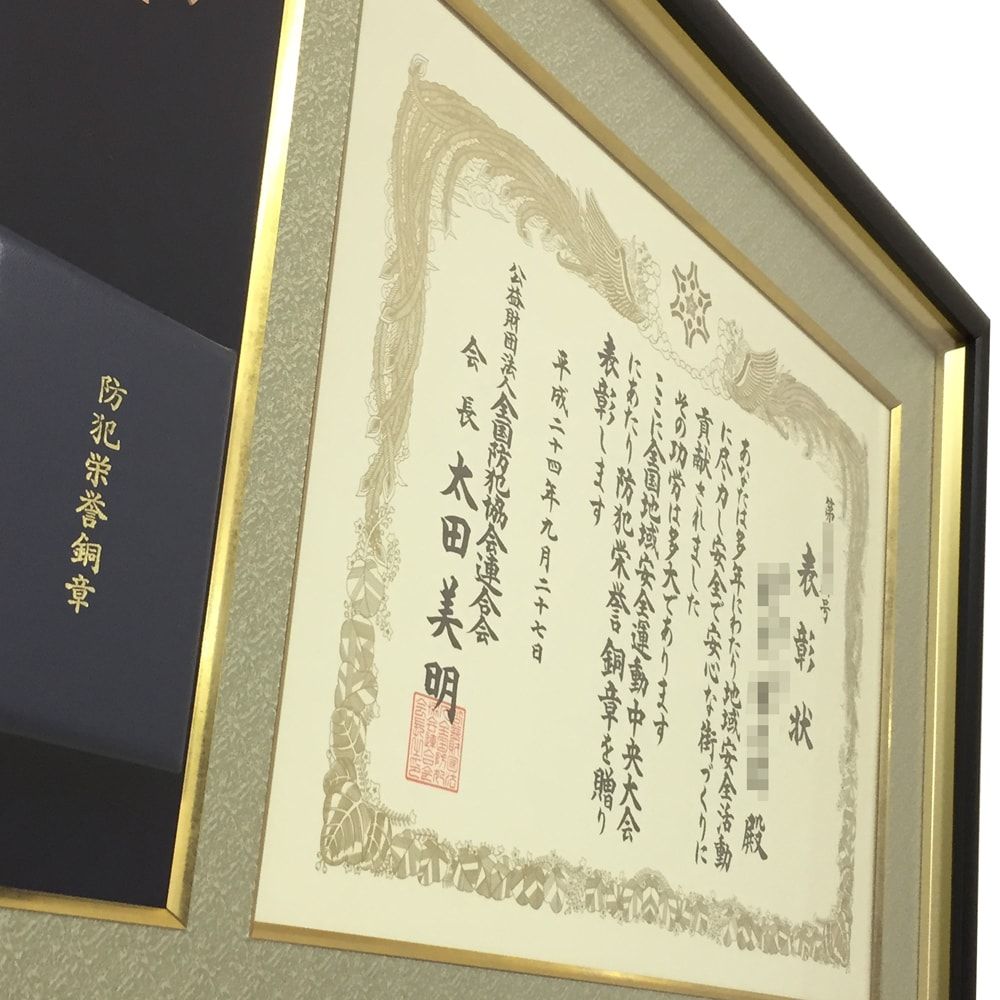 第
号
表彰状
殿
あなたは多年にわたり地域安全活動
に尽力し安全で安心な街づくりに
貢献されました
その功労は多大であります
ここに全国地域安全運動中央大会
にあたり防犯栄誉銅章を贈り
表彰します
平成二十四年九月二十七日
公益財団法人全国防犯協会連合会
会長 太田美明
防犯栄誉銅章